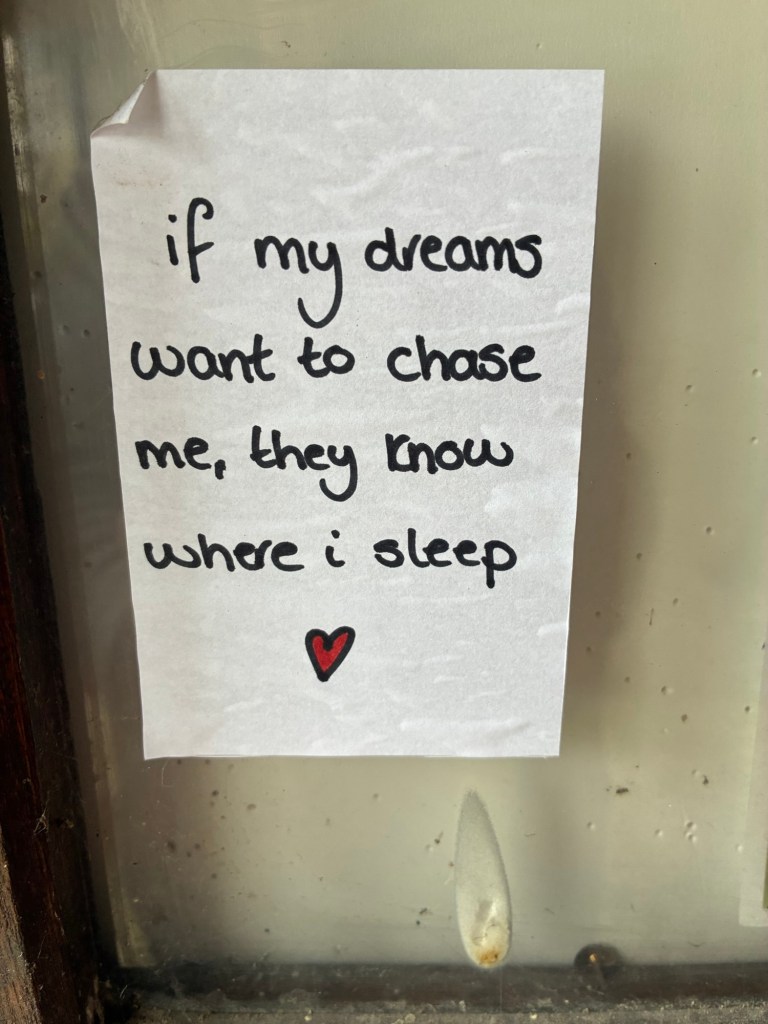 if my dreams
want to chase
me, they know
where i sleep